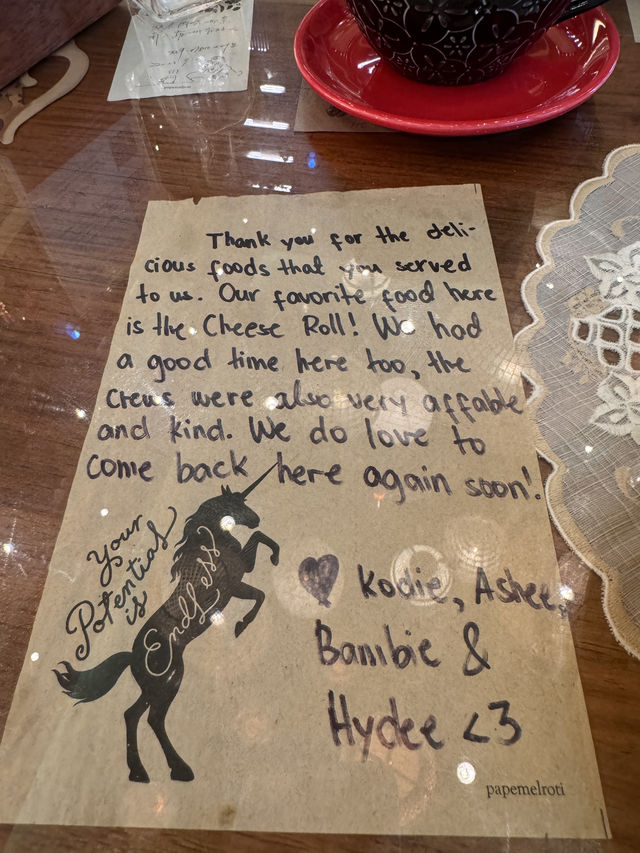 Thank you for the deli-
cious foods that you served
to us. Our favorite food here
is the Cheese Roll! We had
a good time here too, the
crews were also very affable
and kind. We do love to
come back here again soon!
Your
Potential
is
Endless
Kodie, Ashee,
Bambie &
Hydee <3
papemelroti